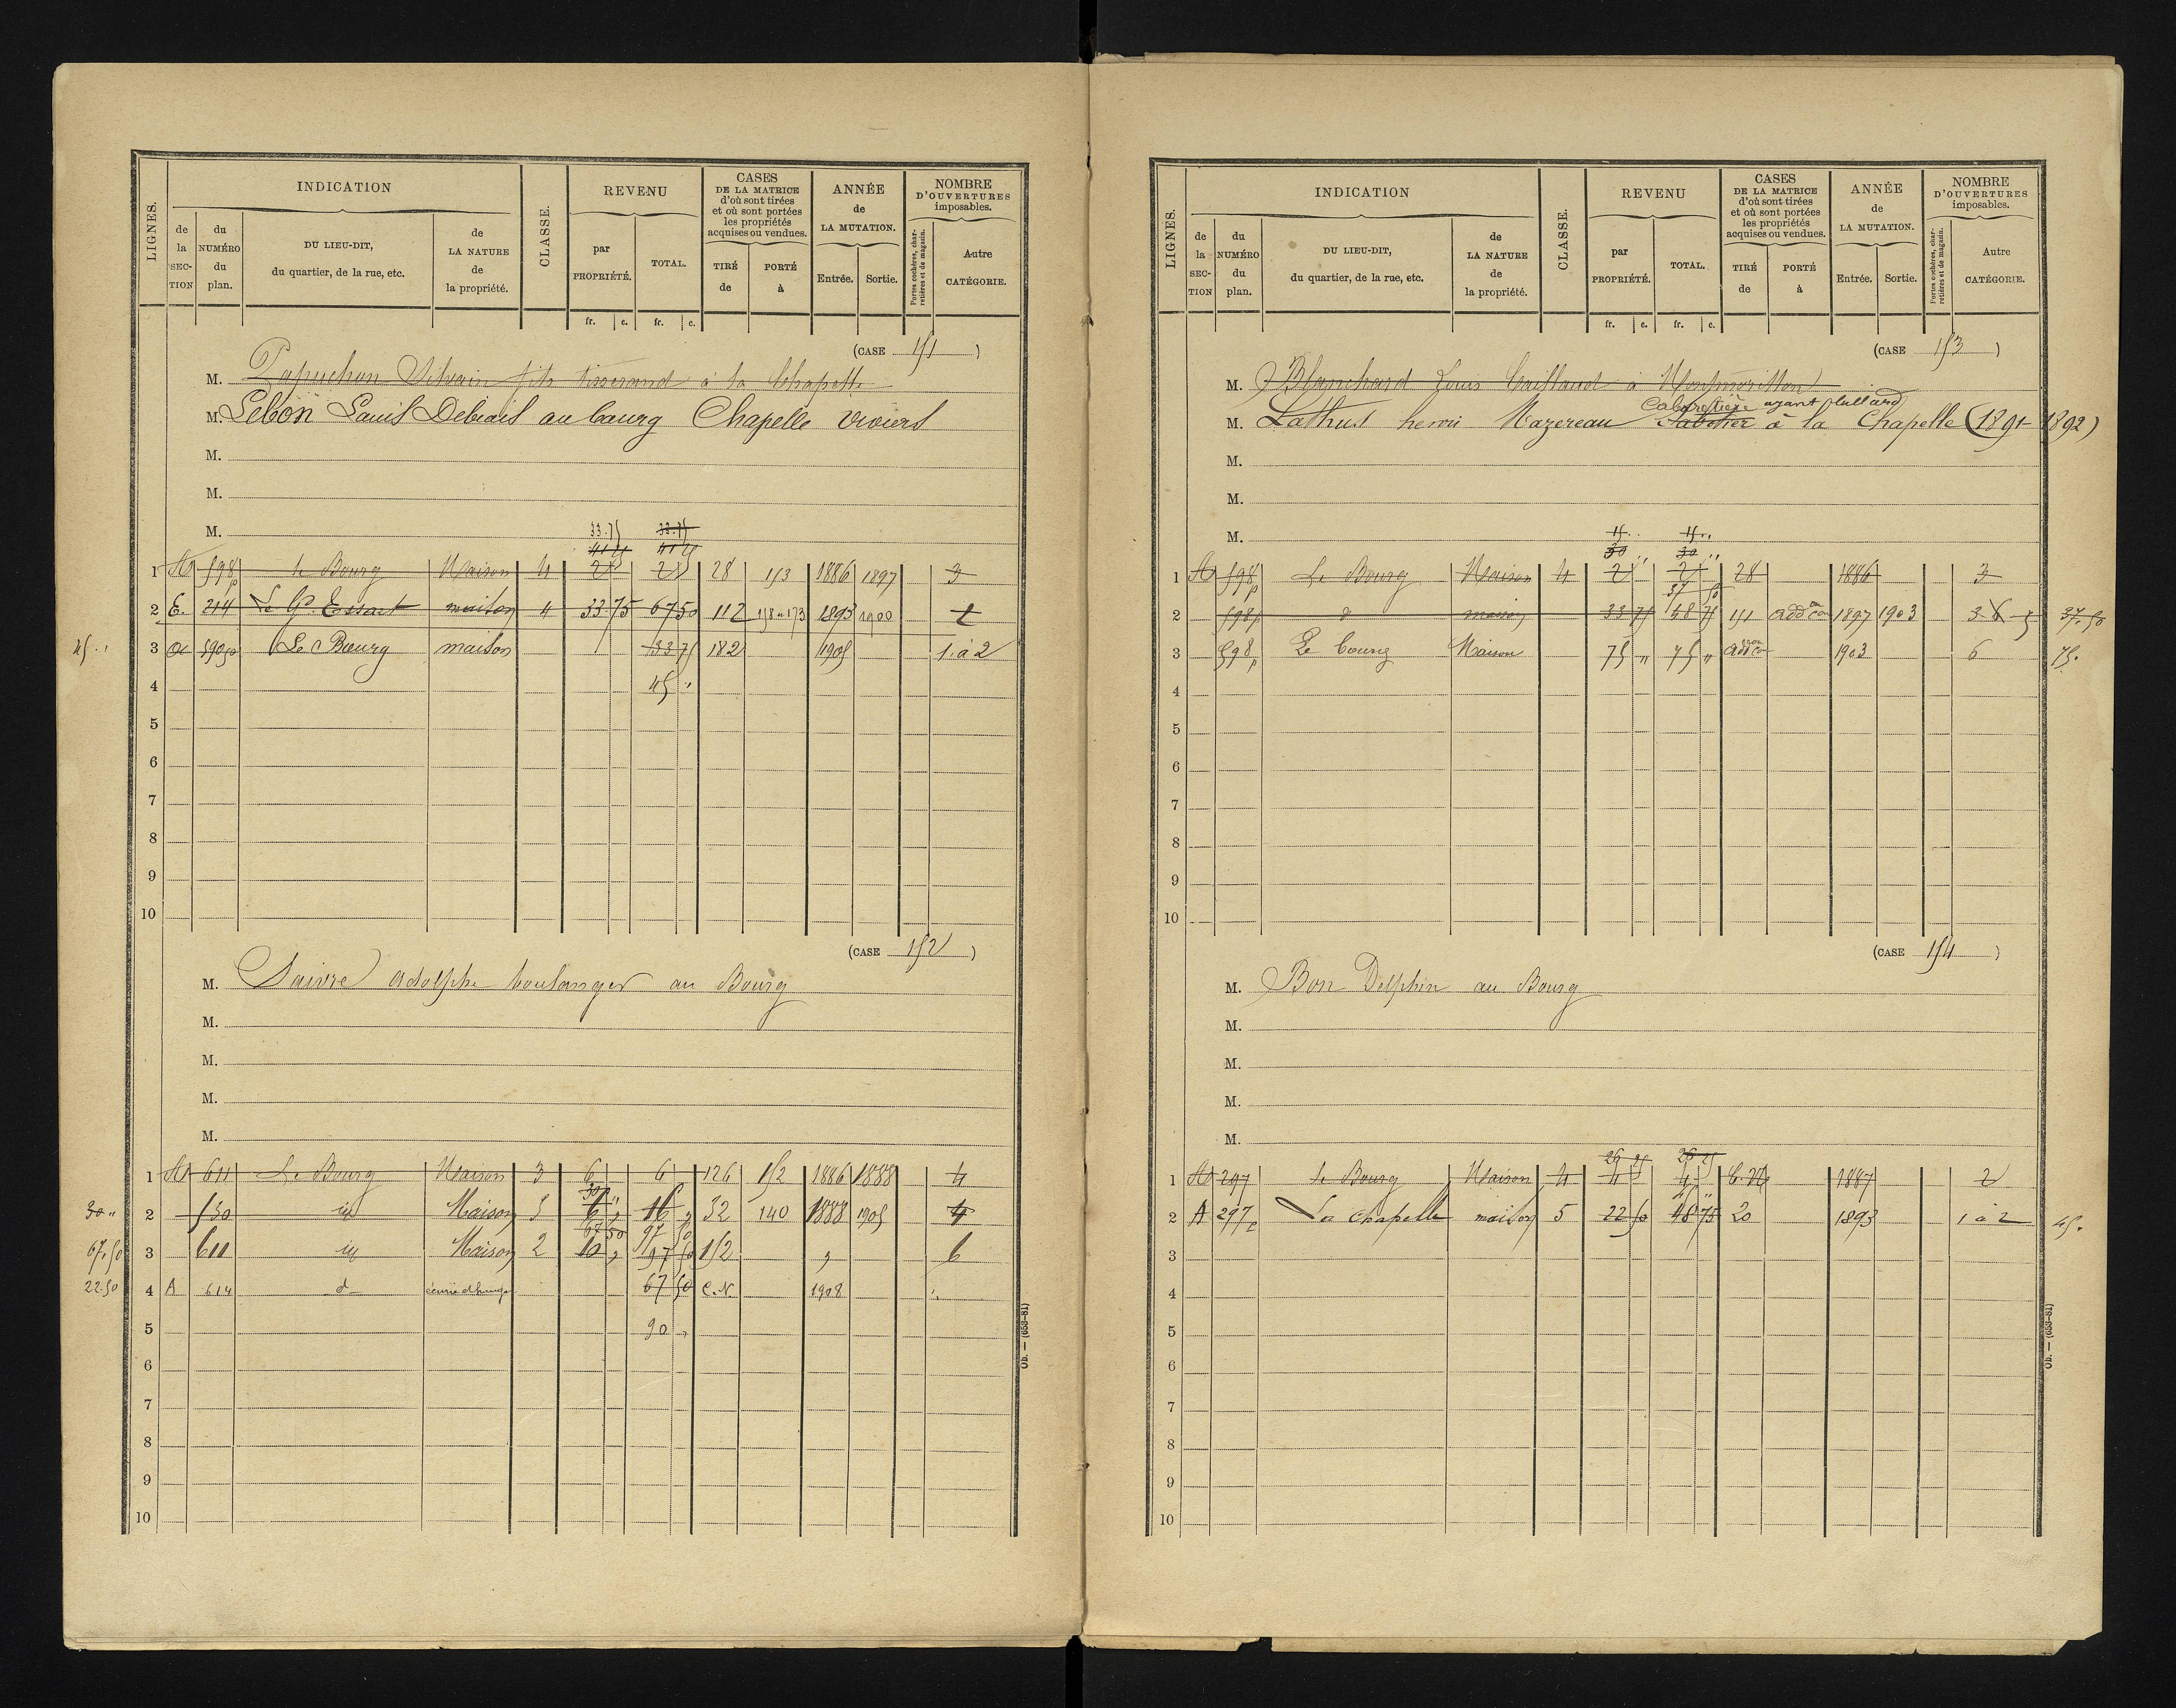 LIGNES.
INDICATION
CLASSE.
REVENU
CASES DE LA MATRICE d'où sont tirées et où sont portées les propriétés acquises ou vendues.
ANNÉE de LA MUTATION.
NOMBRE D'OUVERTURES imposables.
de la SECTION
du NUMÉRO du plan.
DU LIEU-DIT, du quartier, de la rue, etc.
de LA NATURE de la propriété.
par PROPRIÉTÉ.
TOTAL.
TIRÉ de
PORTÉ à
Entrée.
Sortie.
Portes cochères, charretières et de magasin.
Autre CATÉGORIE.
fr. c. fr. c.
(CASE 151)
M. Papuchon Silvain fils tisserand à la Chapelle
M. Lebon Louis Debiais au bourg Chapelle Viviers
M.
M.
M.
33.75 33.75
41 25 41 25
1 A 598p le Bourg Maison 4 28 153 1886 1897 3
2 E. 214 Le Gd. Essart maison 4 33.75 67 50 112 158 à 173 1893 1900 2
45 " 3 a 590p Le Bourg maison 33 75 182 1905 1 à 2
4 45 "
5
6
7
8
9
10
(CASE 152)
M. Saivre Adolphe boulanger au Bourg
M.
M.
M.
M.
1 A 611 Le Bourg Maison 3 6 6 126 152 1886 1888 4
30 " 2 530 id Maison 5 6 " 16 " 32 140 1888 1905 4
30 "
67 50 97 50
67,50 3 611 id Maison 2 10 " 97 50 152 " 6
22.50 4 A 614 d écurie et hangar 67 50 C.N. 1908
5 90 "
6
7
8
9
10
Ob. — (653-81)
LIGNES.
INDICATION
CLASSE.
REVENU
CASES DE LA MATRICE d'où sont tirées et où sont portées les propriétés acquises ou vendues.
ANNÉE de LA MUTATION.
NOMBRE D'OUVERTURES imposables.
de la SECTION
du NUMÉRO du plan.
DU LIEU-DIT, du quartier, de la rue, etc.
de LA NATURE de la propriété.
par PROPRIÉTÉ.
TOTAL.
TIRÉ de
PORTÉ à
Entrée.
Sortie.
Portes cochères, charretières et de magasin.
Autre CATÉGORIE.
fr. c. fr. c.
(CASE 153)
M. Blanchard Louis Caillaud à Montmorillon
Cabaretière ayant billard
M. Lathus henri Mazereau Sabotier à la Chapelle (1891-1892)
M.
M.
M.
15 " 15 "
30 " 30 "
1 A 598p Le Bourg Maison 4 28 1886 3
37 50
2 598p d maison 33 75 48 75 151 addon con 1897 1903 3 6 5 37,50
3 598p Le bourg Maison 75 " 75 " addon con 1903 6 75.
4
5
6
7
8
9
10
(CASE 154)
M. Bon Delphin au Bourg
M.
M.
M.
M.
26 25 26 25
1 A 297 le Bourg Maison 4 C.N. 1887 2
2 A 297p La Chapelle maison 5 22 50 48 75 20 1893 1 à 2 45.
3
4
5
6
7
8
9
10
Ob. — (653-81)